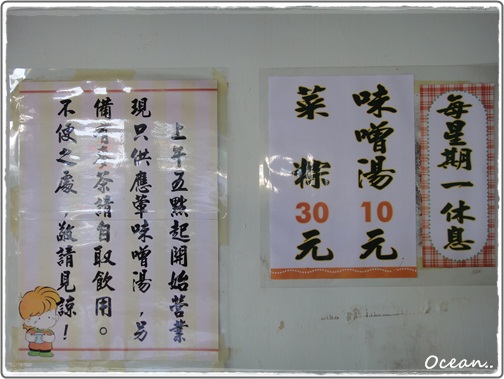 每星期一休息
味噌湯10元
菜粽30元
上午五點起開始營業
現只供應葷味噌湯，另
備有 茶請自取飲用。
不便之處，敬請見諒！
Ocean..